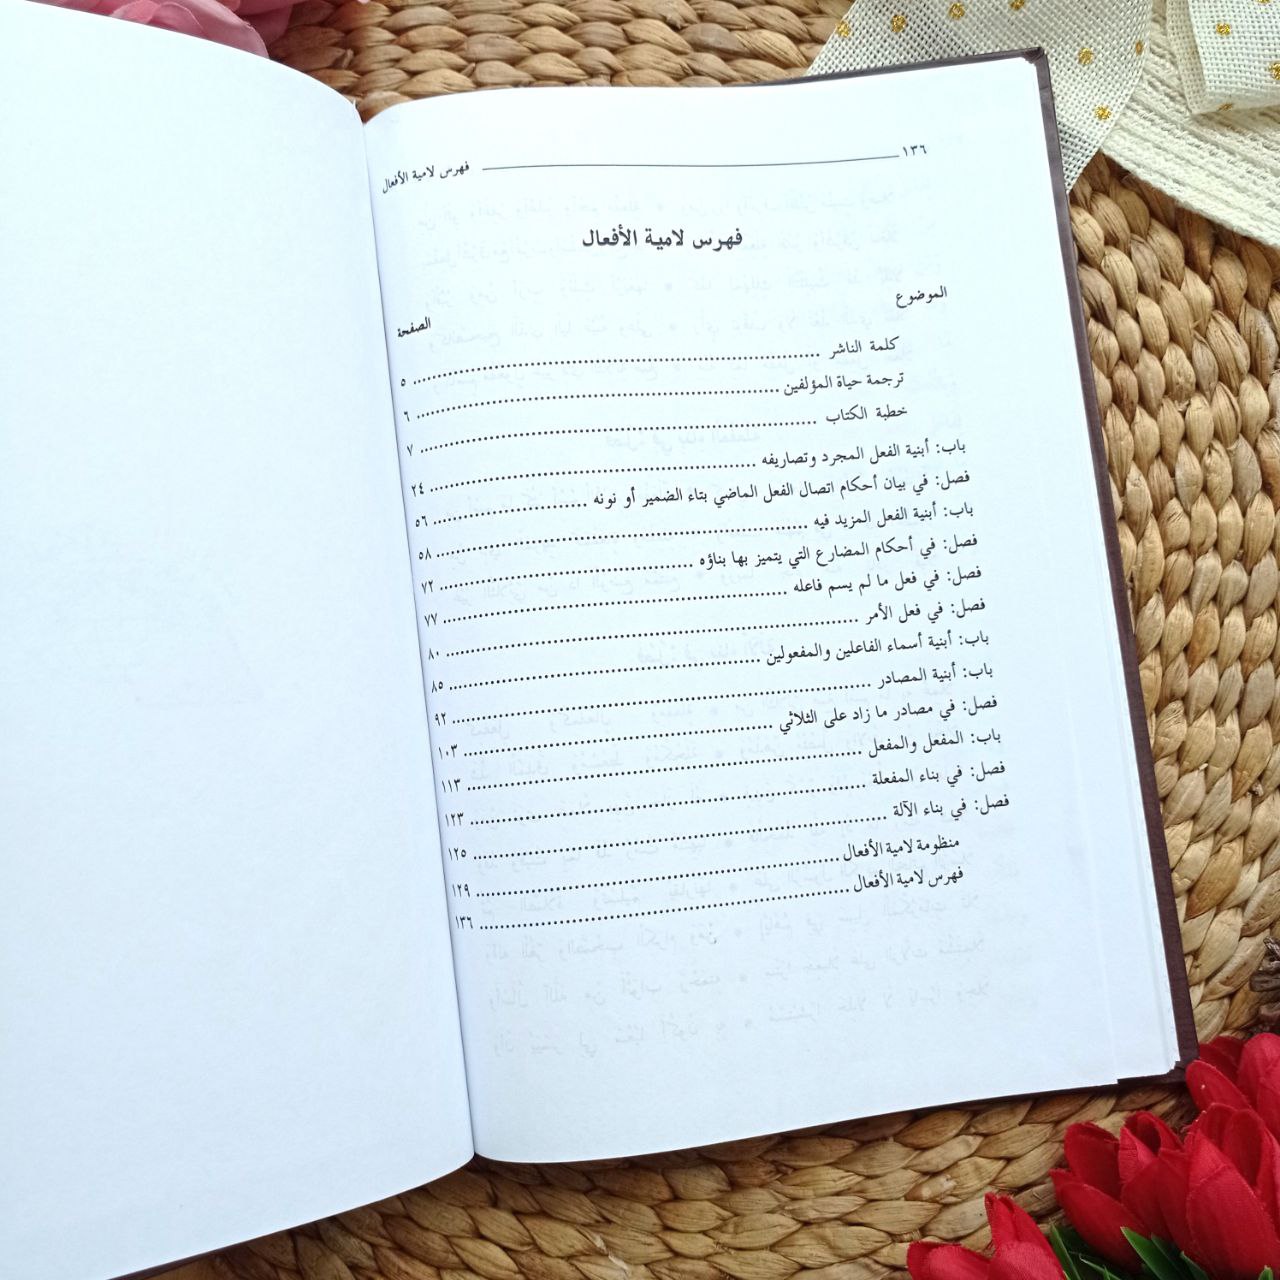 ١٣٦ فهرس لامية الأفعال
فهرس لامية الأفعال
الموضوع الصفحة
كلمة الناشر ٥
ترجمة حياة المؤلفين ٦
خطبة الكتاب ٧
باب: أبنية الفعل المجرد وتصاريفه ٢٤
فصل: في بيان أحكام اتصال الفعل الماضي بتاء الضمير أو نونه ٥٦
باب: أبنية الفعل المزيد فيه ٥٨
فصل: في أحكام المضارع التي يتميز بها بناؤه ٧٢
فصل: في فعل ما لم يسم فاعله ٧٧
فصل: في فعل الأمر ٨٠
باب: أبنية أسماء الفاعلين والمفعولين ٨٥
باب: أبنية المصادر ٩٢
فصل: في مصادر ما زاد على الثلاثي ١٠٣
باب: المفعل والمفعل ١١٣
فصل: في بناء المفعلة ١٢٣
فصل: في بناء الآلة ١٢٥
منظومة لامية الأفعال ١٢٩
فهرس لامية الأفعال ١٣٦